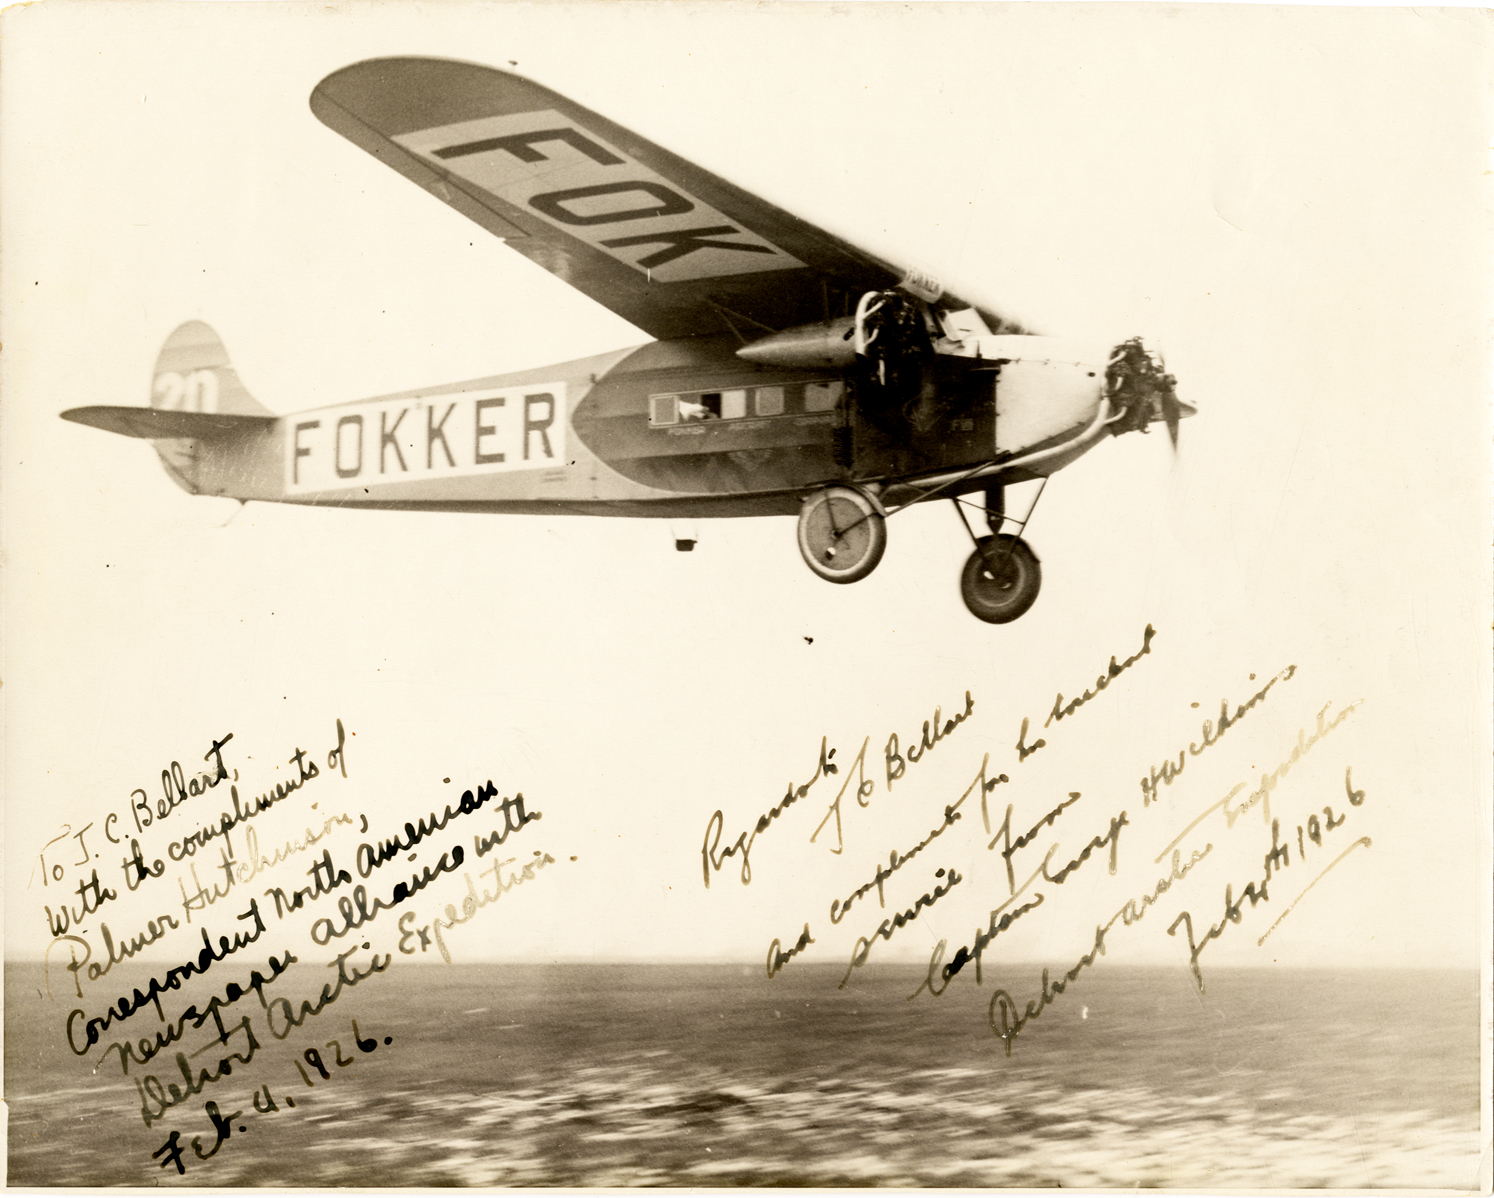 FOK
FOKKER
20
FOKKER
F VII
To J. C. Bellart,
With the compliments of
Palmer Hutchinson,
Correspondent North American
Newspaper Alliance with
Detroit Arctic Expedition.
Feb. 4, 1926.
Regards to
J C Bellart
And compliments for his
service from
Captain George H Wilkins
Detroit Arctic Expedition
Feb 4th 1926